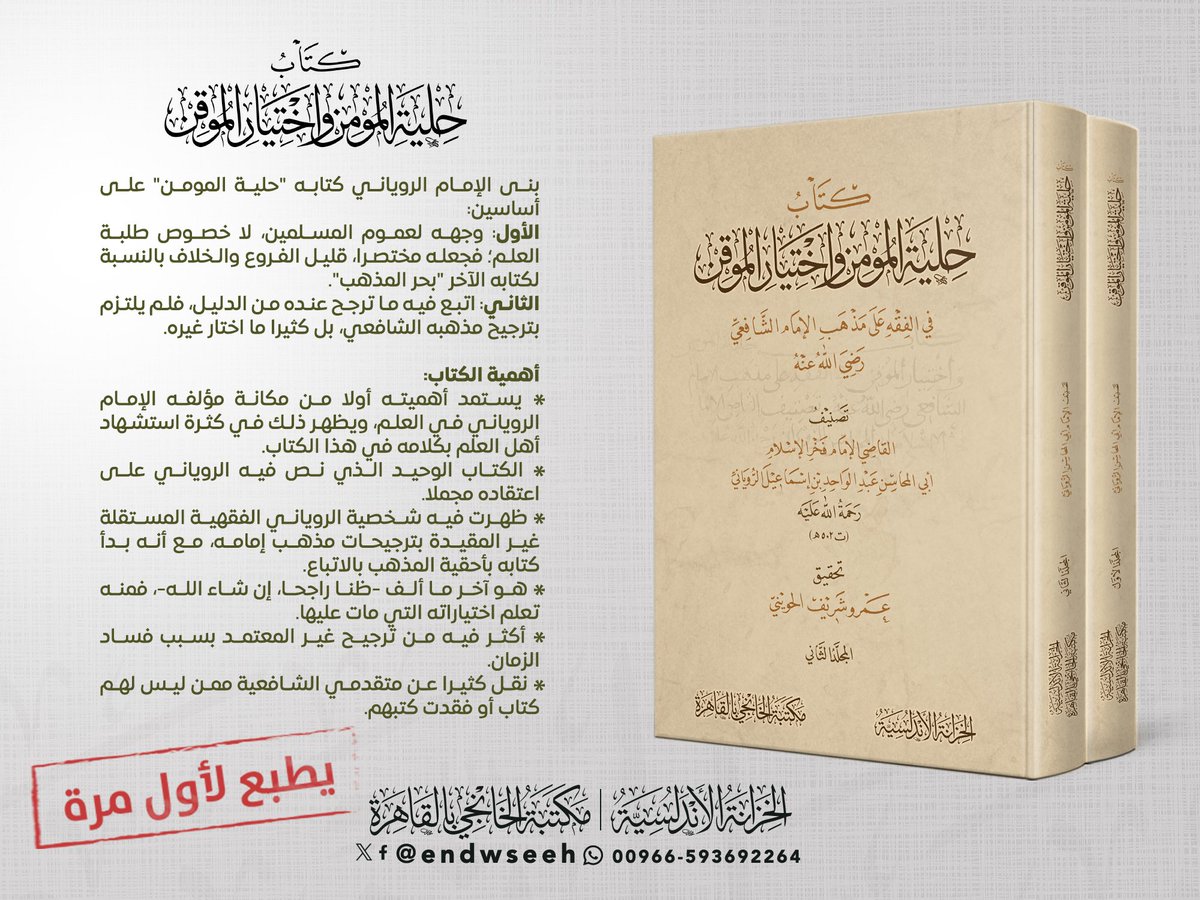 كِتَابُ
حِلْيَةِ المُؤْمِنِ وَاخْتِيَارِ المُوقِنِ
بنى الإمام الروياني كتابه "حلية المومن" على
أساسين:
الأول: وجهه لعموم المسلمين، لا خصوص طلبة
العلم؛ فجعله مختصرا، قليل الفروع والخلاف بالنسبة
لكتابه الآخر "بحر المذهب".
الثاني: اتبع فيه ما ترجح عنده من الدليل، فلم يلتزم
بترجيح مذهبه الشافعي، بل كثيرا ما اختار غيره.
أهمية الكتاب:
* يستمد أهميته أولا من مكانة مؤلفه الإمام
الروياني في العلم، ويظهر ذلك في كثرة استشهاد
أهل العلم بكلامه في هذا الكتاب.
* الكتاب الوحيد الذي نص فيه الروياني على
اعتقاده مجملا.
* ظهرت فيه شخصية الروياني الفقهية المستقلة
غير المقيدة بترجيحات مذهب إمامه، مع أنه بدأ
كتابه بأحقية المذهب بالاتباع.
* هو آخر ما ألف -ظنا راجحا، إن شاء الله-، فمنه
تعلم اختياراته التي مات عليها.
* أكثر فيه من ترجيح غير المعتمد بسبب فساد
الزمان.
* نقل كثيرا عن متقدمي الشافعية ممن ليس لهم
كتاب أو فقدت كتبهم.
يطبع لأول مرة
كِتَابُ
حِلْيَةِ المُؤْمِنِ وَاخْتِيَارِ المُوقِنِ
في الفِقْهِ عَلَى مَذْهَبِ الإِمَامِ الشَّافِعِيِّ
رَضِيَ اللهُ عَنْهُ
تَصْنِيفُ
القَاضِي الإِمَامِ فَخْرِ الإِسْلَامِ
أَبِي المَحَاسِنِ عَبْدِ الوَاحِدِ بْنِ إِسْمَاعِيلَ الرُّويَانِيِّ
رَحْمَةُ اللهِ عَلَيْهِ
(ت ٥٠٢ هـ)
تحقيق
عَمْرو شَرِيف الحويني
المجلد الثاني
الخزانة الأندلسية
مكتبة الخانجي بالقاهرة
كتاب
حلية المؤمن واختيار الموقن
تصنيف الإمام أبي المحاسن الروياني
المجلد الثاني
الخزانة الأندلسية
مكتبة الخانجي بالقاهرة
كتاب
حلية المؤمن واختيار الموقن
تصنيف الإمام أبي المحاسن الروياني
المجلد الأول
الخزانة الأندلسية
مكتبة الخانجي بالقاهرة
الخِزَانَةُ الأَنْدَلُسِيَّةُ | مَكْتَبَةُ الخَانْجِي بِالقَاهِرَةِ
@endwseeh 00966-593692264